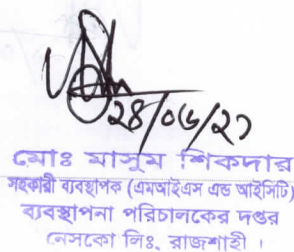 ২৪/০৬/২১
মোঃ মাসুম শিকদার
সহকারী ব্যবস্থাপক (এমআইএস এন্ড আইসিটি)
ব্যবস্থাপনা পরিচালকের দপ্তর
নেসকো লিঃ, রাজশাহী।